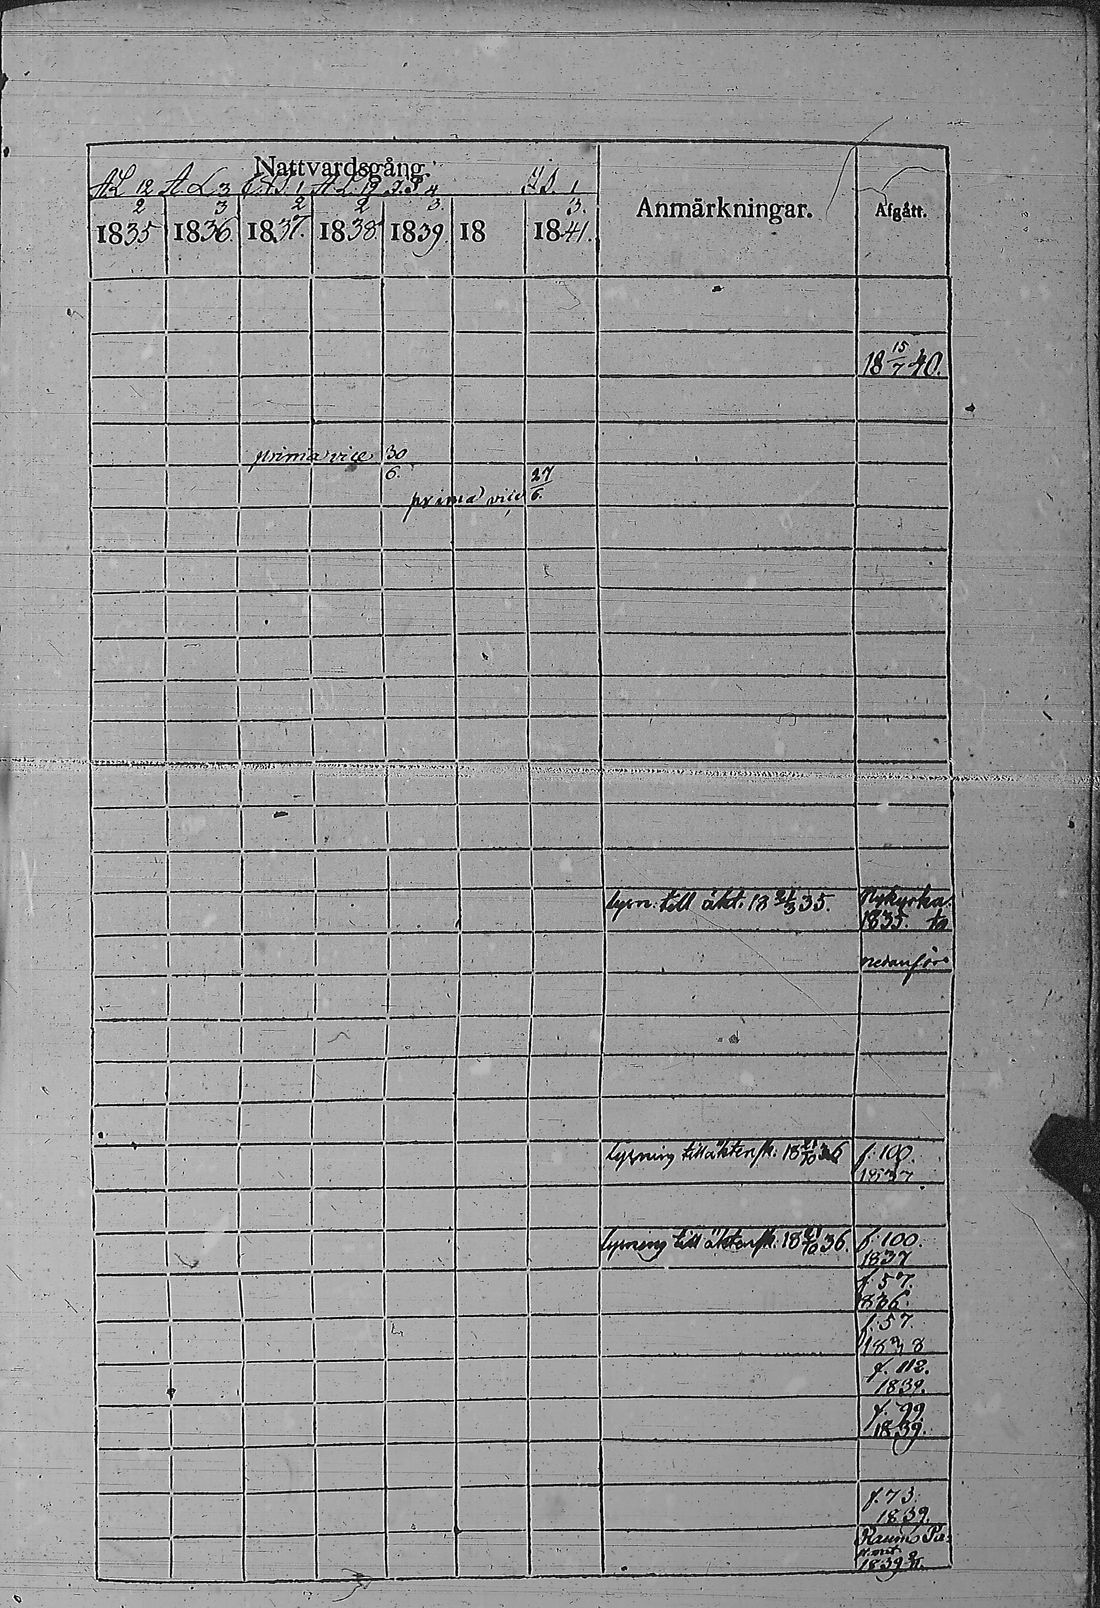 Nattvardsgång.
A.L. 12 A.L. 3 1 A.L. 12 4 1
2 3 2 2 3. 3.
1835 1836. 1837. 1838. 1839. 18 1841.
Anmärkningar.
Afgått.
18 15/7 40.
prima vice 30/6.
prima vice 27/6.
lysn. till äkt. 18 3 35.
Nykyrka.
1835.
nedanför
lysning till äktensk. 18 21/10 36
f. 100.
1837.
lysning till äktensk. 18 21/10 36.
f. 100.
1837
f. 57.
1836.
f. 57.
1838
f. 112.
1839.
f. 99.
1839.
f. 73.
1839.
Raumo
1839